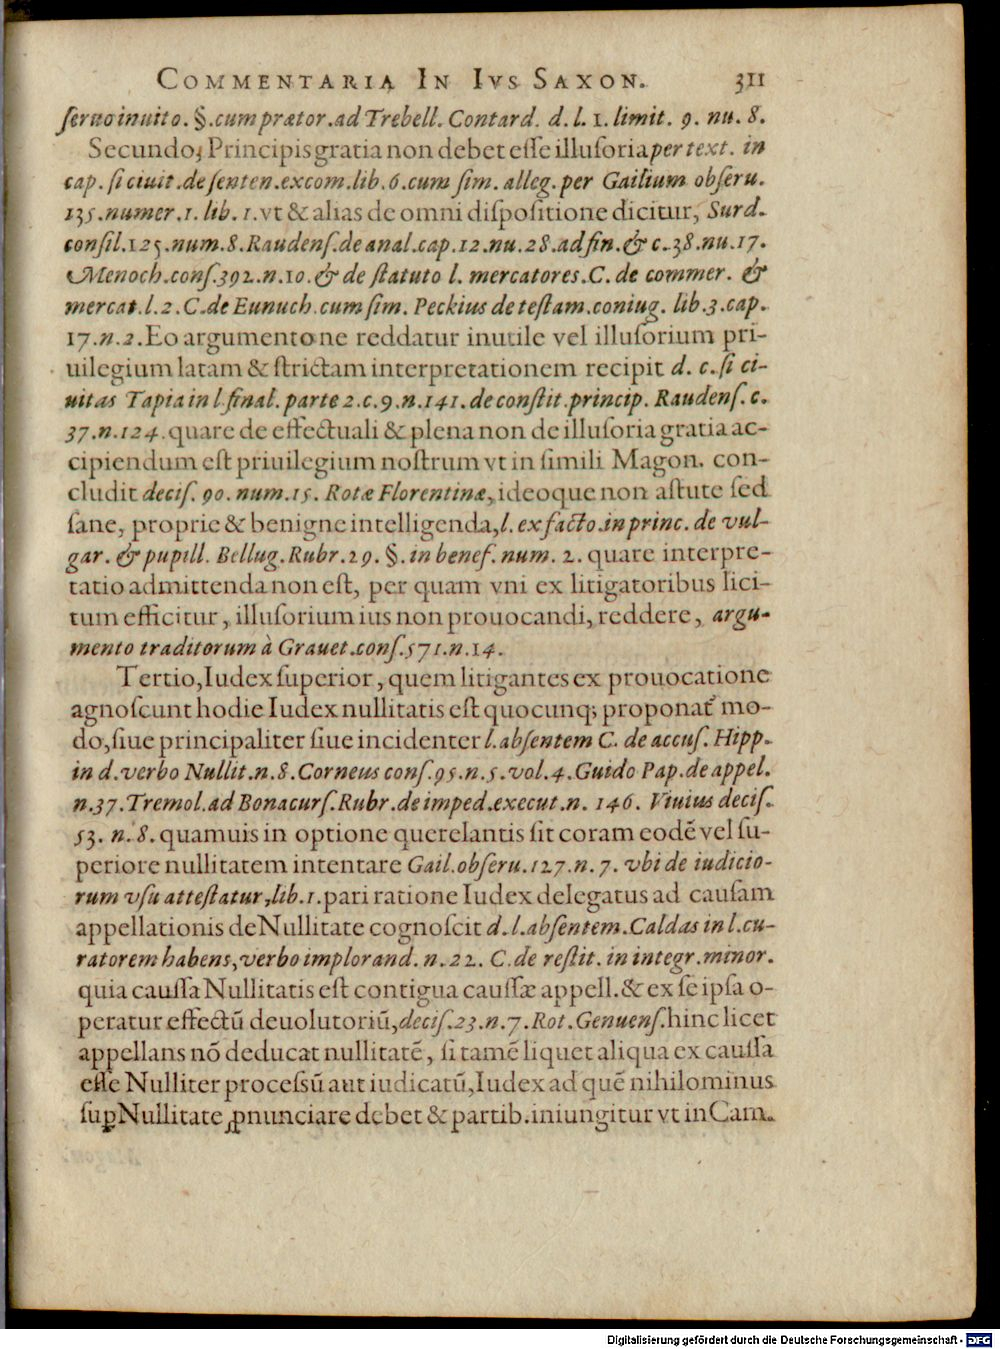 COMMENTARIA IN IVS SAXON. 311
ſeruo inuito. §. cum prætor. ad Trebell. Contard. d. l. 1. limit. 9. nu. 8.
Secundo, Principis gratia non debet eſſe illuſoria per text. in
cap. ſi ciuit. de ſenten. excom. lib. 6. cum ſim. alleg. per Gailium obſeru.
135. numer. 1. lib. 1. vt & alias de omni diſpoſitione dicitur, Surd.
conſil. 125. num. 8. Raudenſ. de anal. cap. 12. nu. 28. ad fin. & c. 38. nu. 17.
Menoch. conſ. 392. n. 10. & de ſtatuto l. mercatores. C. de commer. &
mercat. l. 2. C. de Eunuch. cum ſim. Peckius de teſtam. coniug. lib. 3. cap.
17. n. 2. Eo argumento ne reddatur inutile vel illuſorium pri-
uilegium latam & ſtrictam interpretationem recipit d. c. ſi ci-
uitas Tapia in l. final. parte 2. c. 9. n. 141. de conſtit. princip. Raudenſ. c.
37. n. 124. quare de effectuali & plena non de illuſoria gratia ac-
cipiendum eſt priuilegium noſtrum vt in ſimili Magon. con-
cludit deciſ. 90. num. 15. Rotæ Florentinæ, ideoque non aſtute ſed
ſane, proprie & benigne intelligenda, l. ex facto. in princ. de vul-
gar. & pupill. Bellug. Rubr. 29. §. in beneſ. num. 2. quare interpre-
tatio admittenda non eſt, per quam vni ex litigatoribus lici-
tum efficitur, illuſorium ius non prouocandi, reddere, argu-
mento traditorum à Grauet. conſ. 571. n. 14.
Tertio, Iudex ſuperior, quem litigantes ex prouocatione
agnoſcunt hodie Iudex nullitatis eſt quocunq; proponat᷑ mo-
do, ſiue principaliter ſiue incidenter l. abſentem C. de accuſ. Hipp.
in d. verbo Nullit. n. 8. Corneus conſ. 95. n. 5. vol. 4. Guido Pap. de appel.
n. 37. Tremol. ad Bonacurſ. Rubr. de imped. execut. n. 146. Viuius deciſ.
53. n. 8. quamuis in optione querelantis ſit coram eodē vel ſu-
periore nullitatem intentare Gail. obſeru. 127. n. 7. vbi de iudicio-
rum vſu atteſtatur, lib. 1. pari ratione Iudex delegatus ad cauſam
appellationis de Nullitate cognoſcit d. l. abſentem. Caldas in l. cu-
ratorem habens, verbo implorand. n. 22. C. de reſtit. in integr. minor.
quia cauſſa Nullitatis eſt contigua cauſſæ appell. & ex ſe ipſa o-
peratur effectū deuolutoriū, deciſ. 23. n. 7. Rot. Genuenſ. hinc licet
appellans nō deducat nullitatē, ſi tamē liquet aliqua ex cauſſa
eſſe Nulliter proceſsū aut iudicatū, Iudex ad quē nihilominus
ſuꝑ Nullitate ꝓnunciare debet & partib. iniungitur vt in Cam.
Digitalisierung gefördert durch die Deutsche Forschungsgemeinschaft - DFG